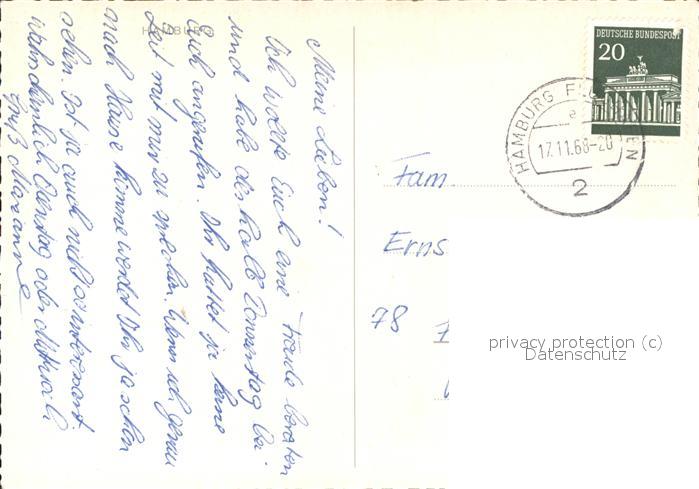 HAMBURG
Meine Lieben!
Ich wollte Euch eine Freude bereiten
und habe deshalb Donnerstag bei
Euch angerufen. Ihr hattet ja keine
Zeit mit mir zu sprechen. Wenn ich genau
nach Hause komme werdet Ihr ja schon
sehen. Ist ja auch nicht so interessant.
Wahrscheinlich Dienstag oder Mittwoch.
Gruß Marianne
DEUTSCHE BUNDESPOST
20
HAMBURG
e
17.11.68-20
2
Fam
Erns
78
privacy protection (c)
Datenschutz